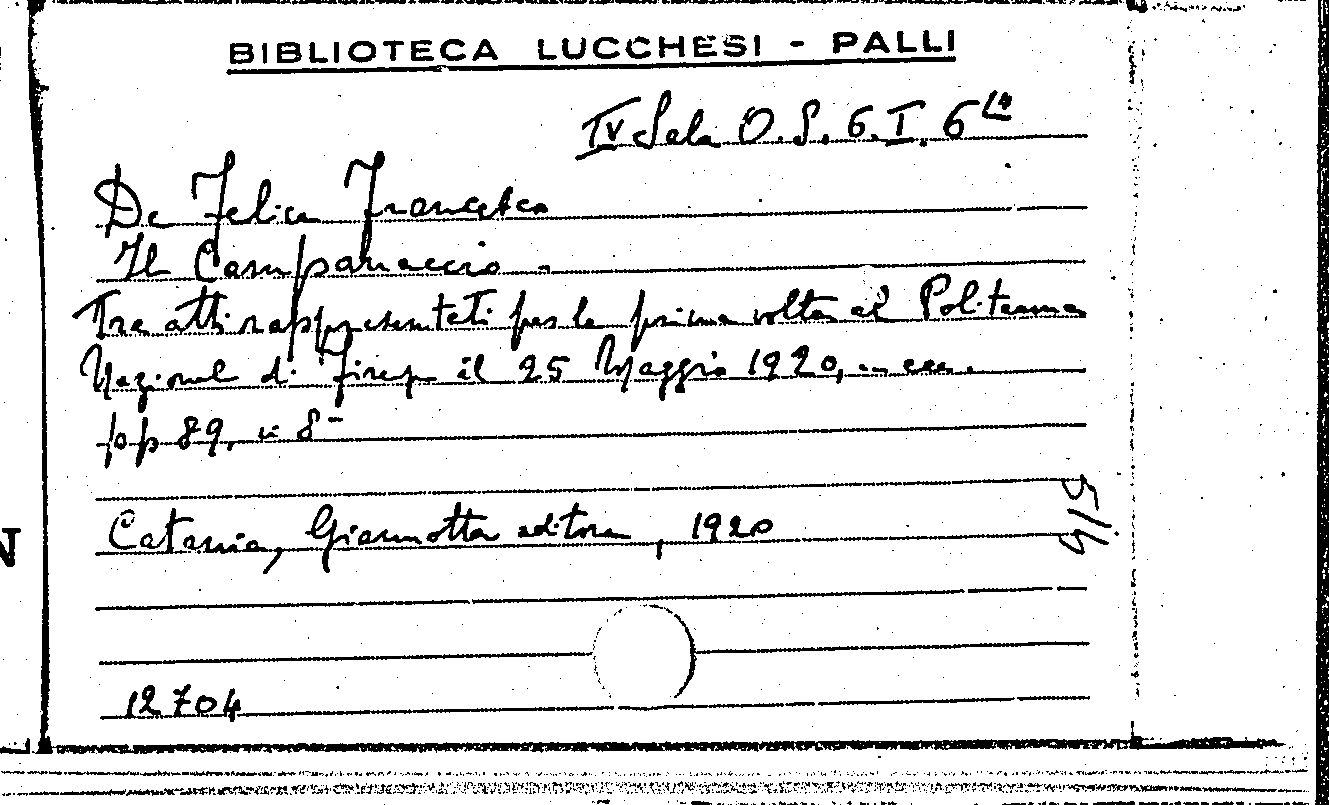 BIBLIOTECA LUCCHESI - PALLI
IV Sala O. S. 6. I. 6
De Felice Francesco
Il Campanaccio -
Tre atti rappresentati per la prima volta al Politeama
Nazional di Firenze il 25 Maggio 1920, ecc.
pp 89, in 8-
Catania, Giannotta editore, 1920
12704